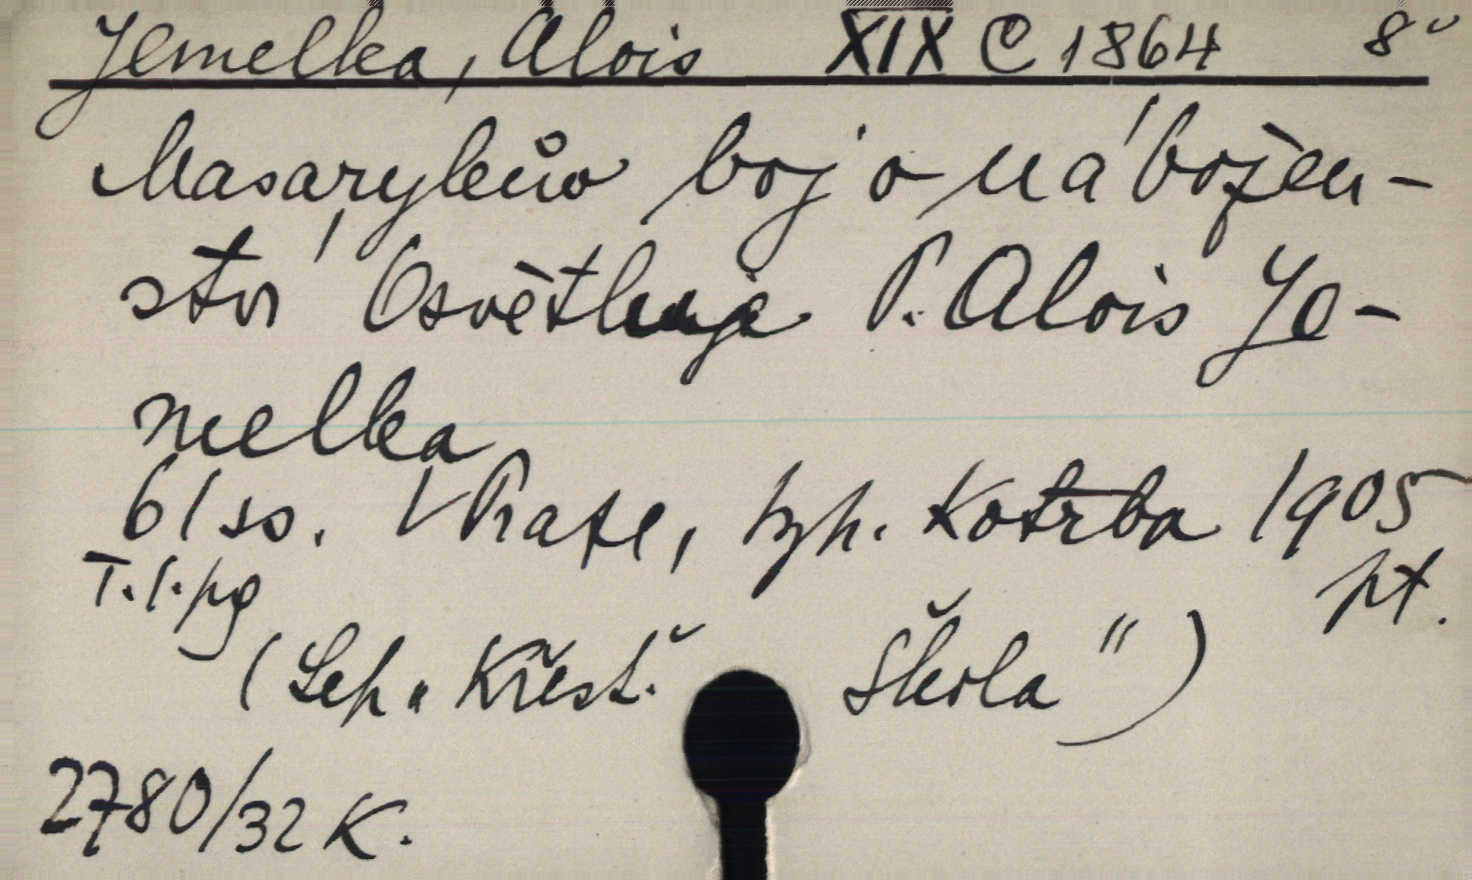 Jemelka, Alois XIX C 1864 8°
Masarykův boj o nábožen-
ství Osvětluje P. Alois Je-
melka
61 ss. V Praze, typ. Kotrba 1905
T. I. pg pt.
(Sep. „Křesť. Škola“)
2780/32 K.